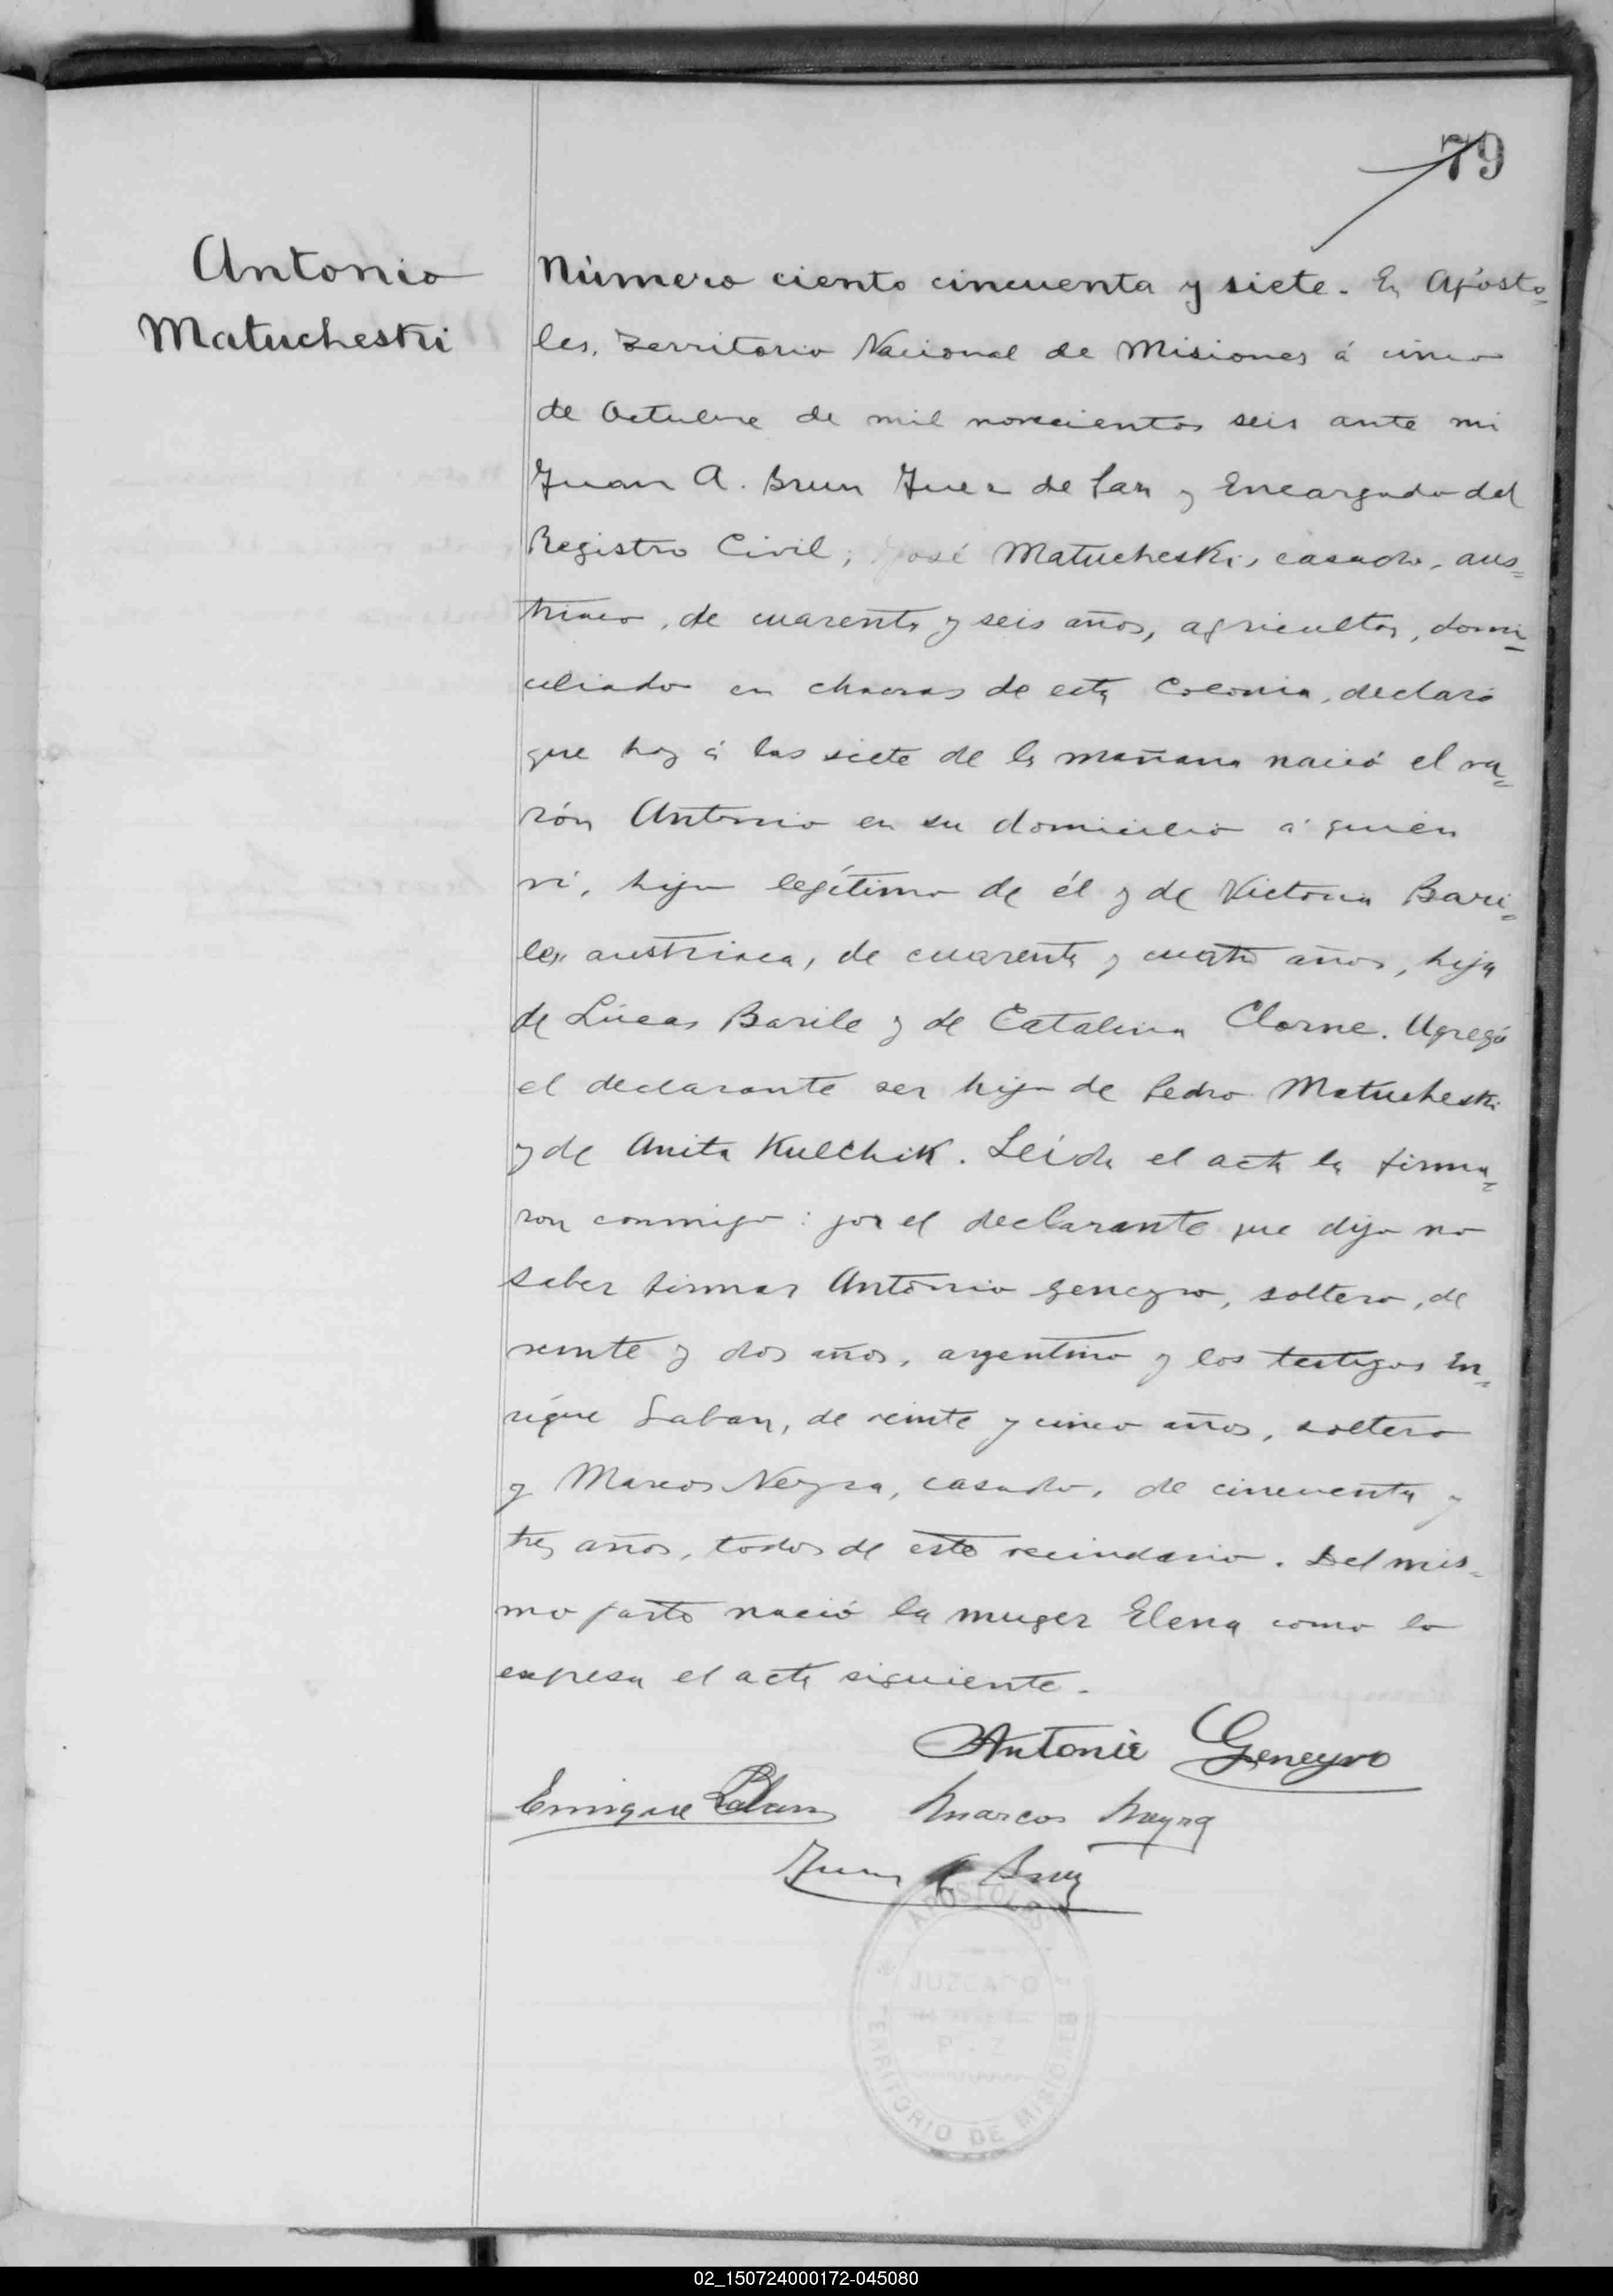 79
Antonio
Matucheski
Número ciento cincuenta y siete. En Aposto=
les, Territorio Nacional de Misiones á cinco
de Octubre de mil novecientos seis ante mi
Juan A. Brun Juez de Paz y Encargado del
Registro Civil, José Matucheski, casado, aus=
triaco, de cuarenta y seis años, agricultor, domi=
ciliado en chacras de esta Colonia, declaró
que hoy á las siete de la mañana nació el va=
rón Antonio en su domicilio á quien
ví, hijo legítimo de él y de Victoria Bari=
le, austriaca, de cuarenta y cuatro años, hija
de Lúcas Barile y de Catalina Clorne. Agregó
el declarante ser hijo de Pedro Matucheski
y de Anita Kulchik. Leida el acta la firma=
ron conmigo: por el declarante que dijo no
saber firmar Antonio Geneyro, soltero, de
veinte y dos años, argentino y los testigos En=
rique Laban, de veinte y cinco años, soltero
y Marcos Neyra, casado, de cincuenta y
tres años, todos de este vecindario. Del mis=
mo parto nació la muger Elena como lo
expresa el acta siguiente.
Antonio Geneyro
Enrique Laban Marcos Neyra
Juan A Brun
APOSTOLES
JUZGADO
TERRITORIO DE MISIONES
02_150724000172-045080